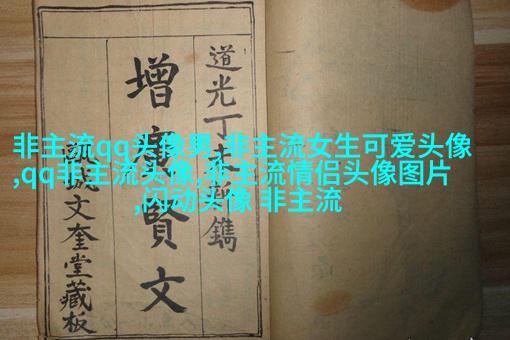 非主流qq头像男,非主流女生可爱头像
,qq非主流头像,非主流情侣头像图片
,闪动头像 非主流
道光丁未新鐫
增廣賢文
文奎堂藏板